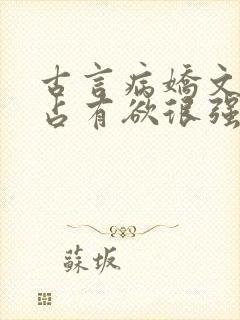 古言病嬌文
占有欲很强
蘇坂